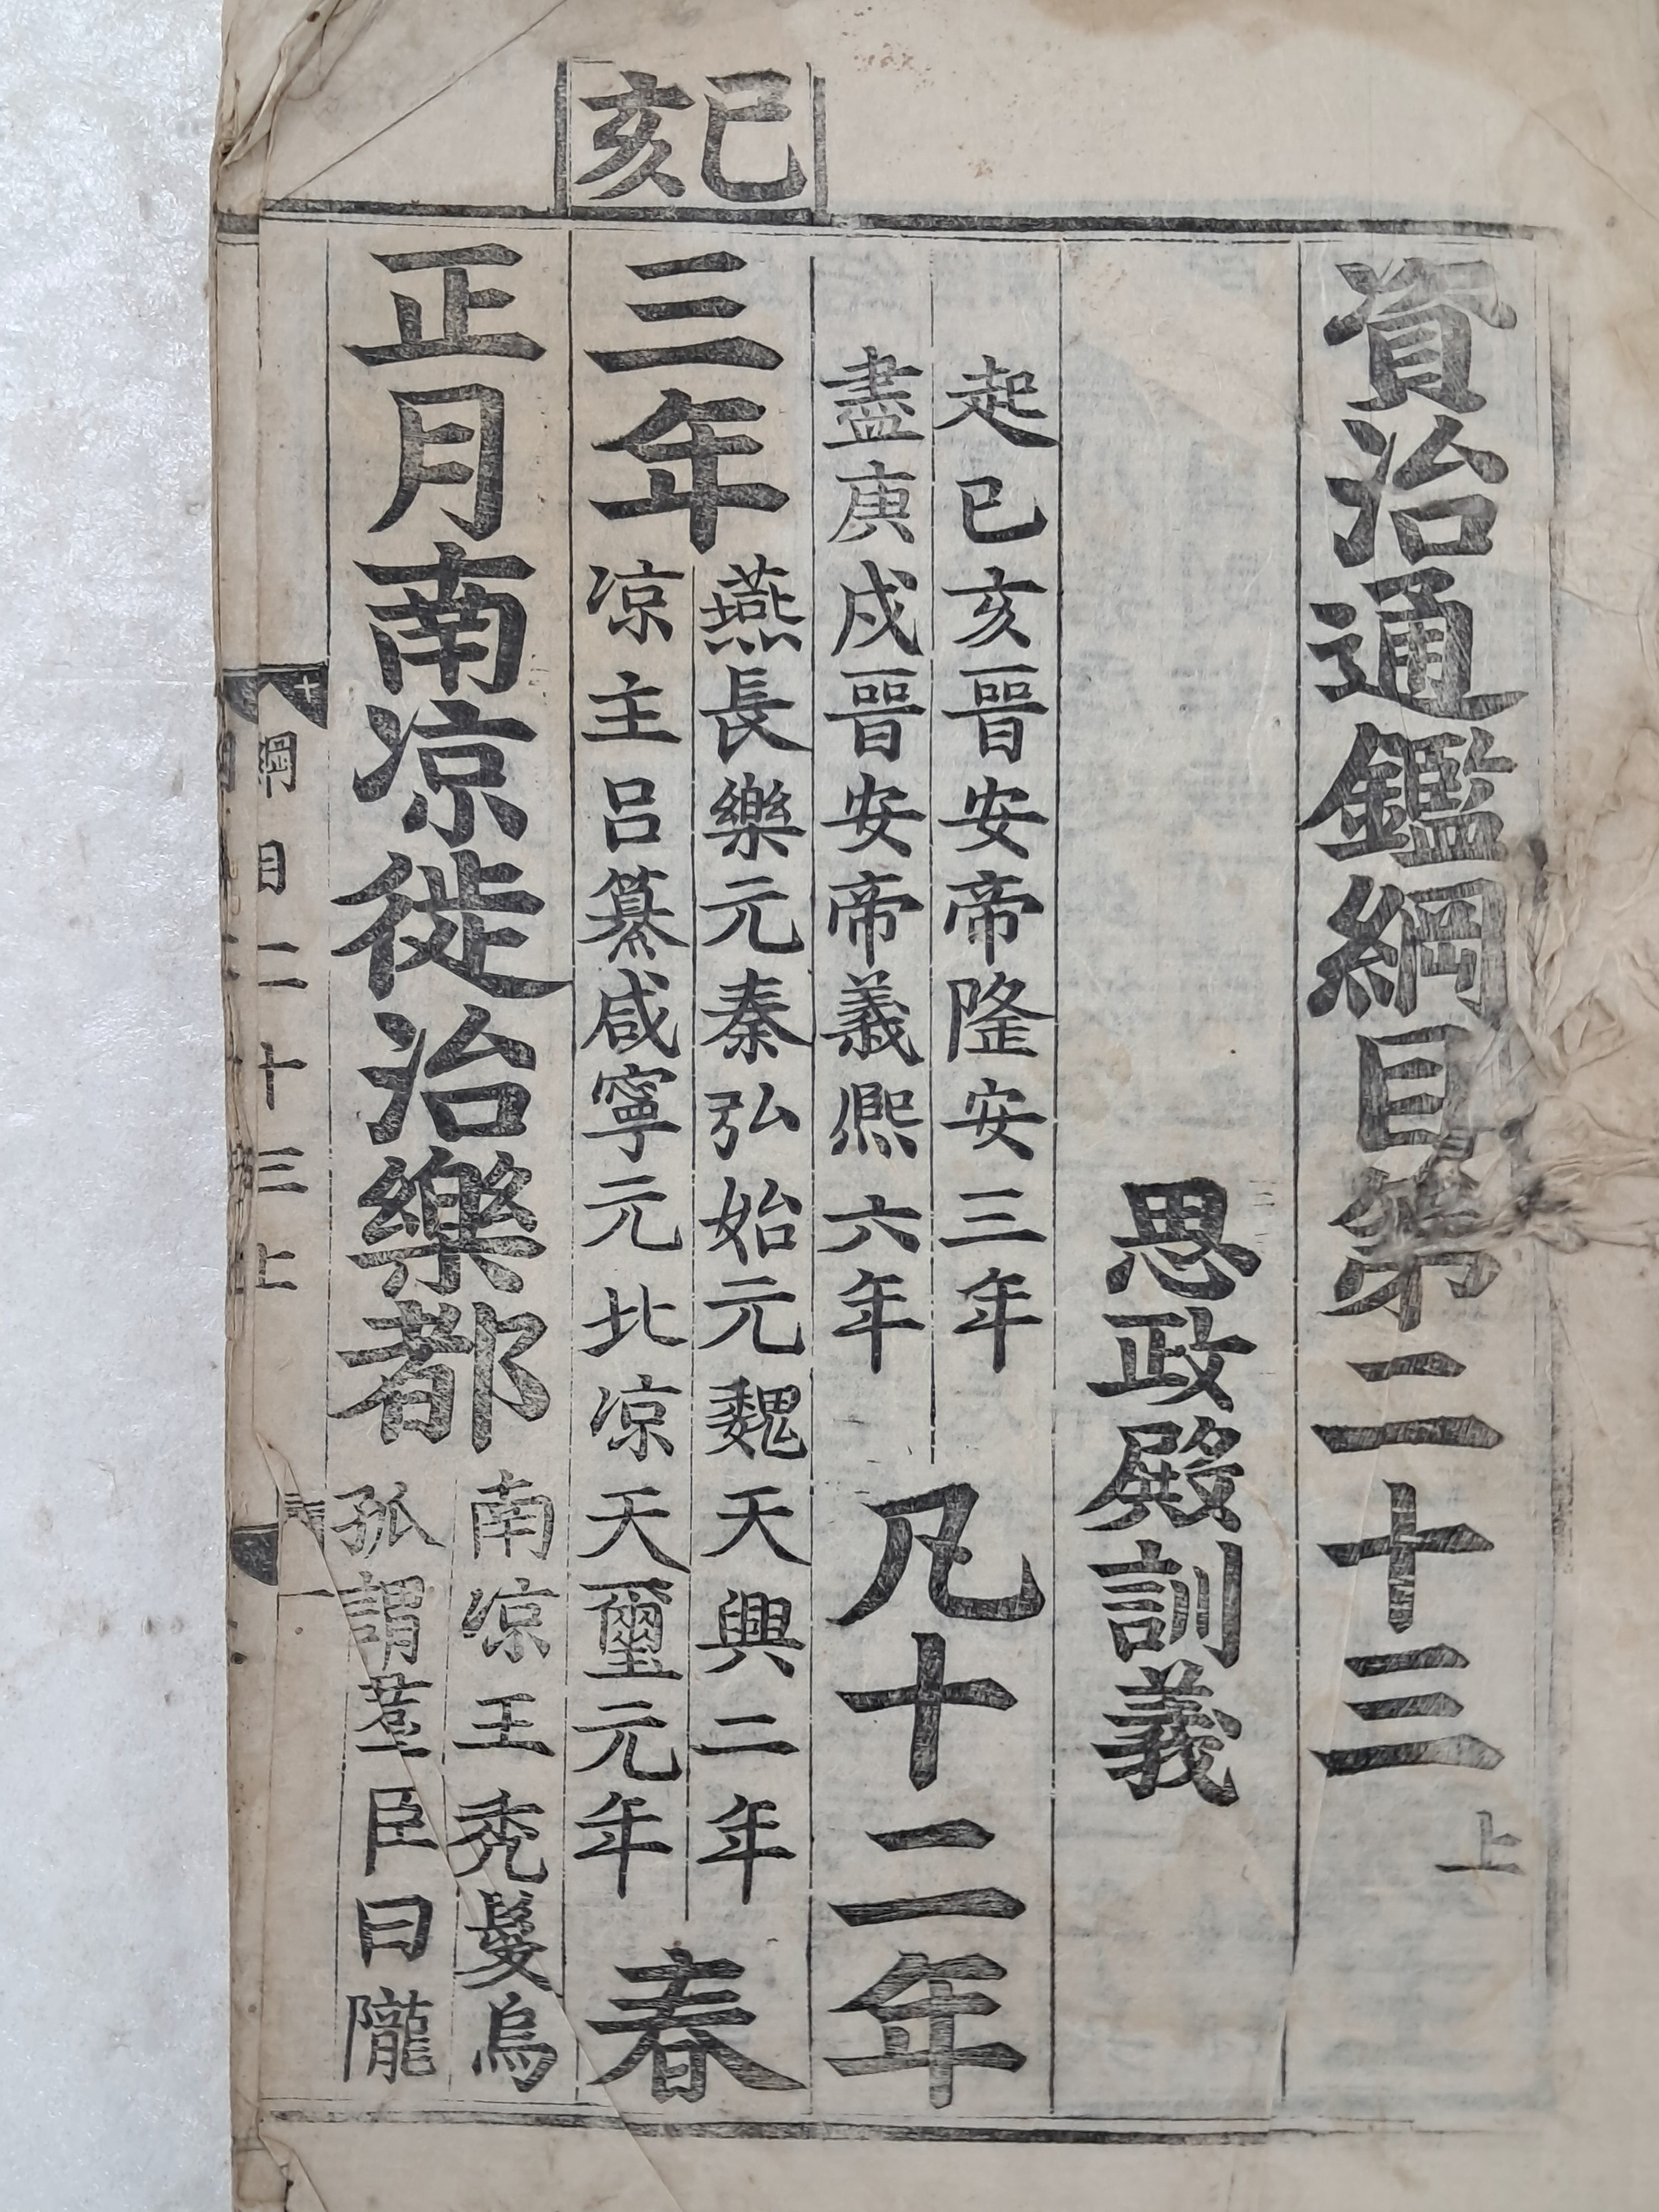 資治通鑑綱目第二十三上
思政殿訓義
起己亥晉安帝隆安三年
盡庚戌晉安帝義熙六年
凡十二年
己亥
三年
燕長樂元秦弘始元魏天興二年
凉主呂纂咸寧元北凉天璽元年
春
正月南凉徙治樂都
南凉王禿髮烏
孤謂羣臣曰隴
綱目二十三上
一